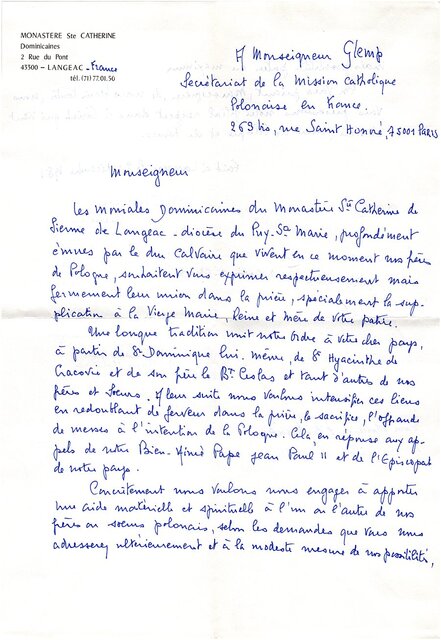 MONASTÈRE Ste CATHERINE
Dominicaines
2 Rue du Pont
43300 - LANGEAC - France
tél. (71) 77.01.50
A Monseigneur Glemp
Secrétariat de la Mission Catholique
Polonaise en France.
269 bis, rue Saint Honoré, 75001 PARIS
Monseigneur
Les Moniales Dominicaines du Monastère Ste Catherine de
Sienne de Langeac - diocèse du Puy-Ste Marie, profondément
émues par le dur Calvaire que vivent en ce moment nos frères
de Pologne, souhaitent vous exprimer respectueusement mais
fermement leur union dans la prière, spécialement la sup-
plication à la Vierge Marie, Reine et Mère de votre patrie.
Une longue tradition unit notre Ordre à votre cher pays,
à partir de St Dominique lui-même, de St Hyacinthe de
Cracovie et de son frère le Bt Ceslas et tant d'autres de nos
frères et Soeurs. A leur suite nous voulons intensifier ces liens
en redoublant de ferveur dans la prière, le sacrifice, l'offrande
de messes à l'intention de la Pologne. Cela en réponse aux ap-
pels de notre Bien-Aimé Pape Jean Paul II et de l'Episcopat
de notre pays.
Concrètement nous voulons nous engager à apporter
une aide matérielle et spirituelle à l'un ou l'autre de nos
frères ou soeurs polonais, selon les demandes que vous nous
adresserez ultérieurement et à la modeste mesure de nos possibilités,